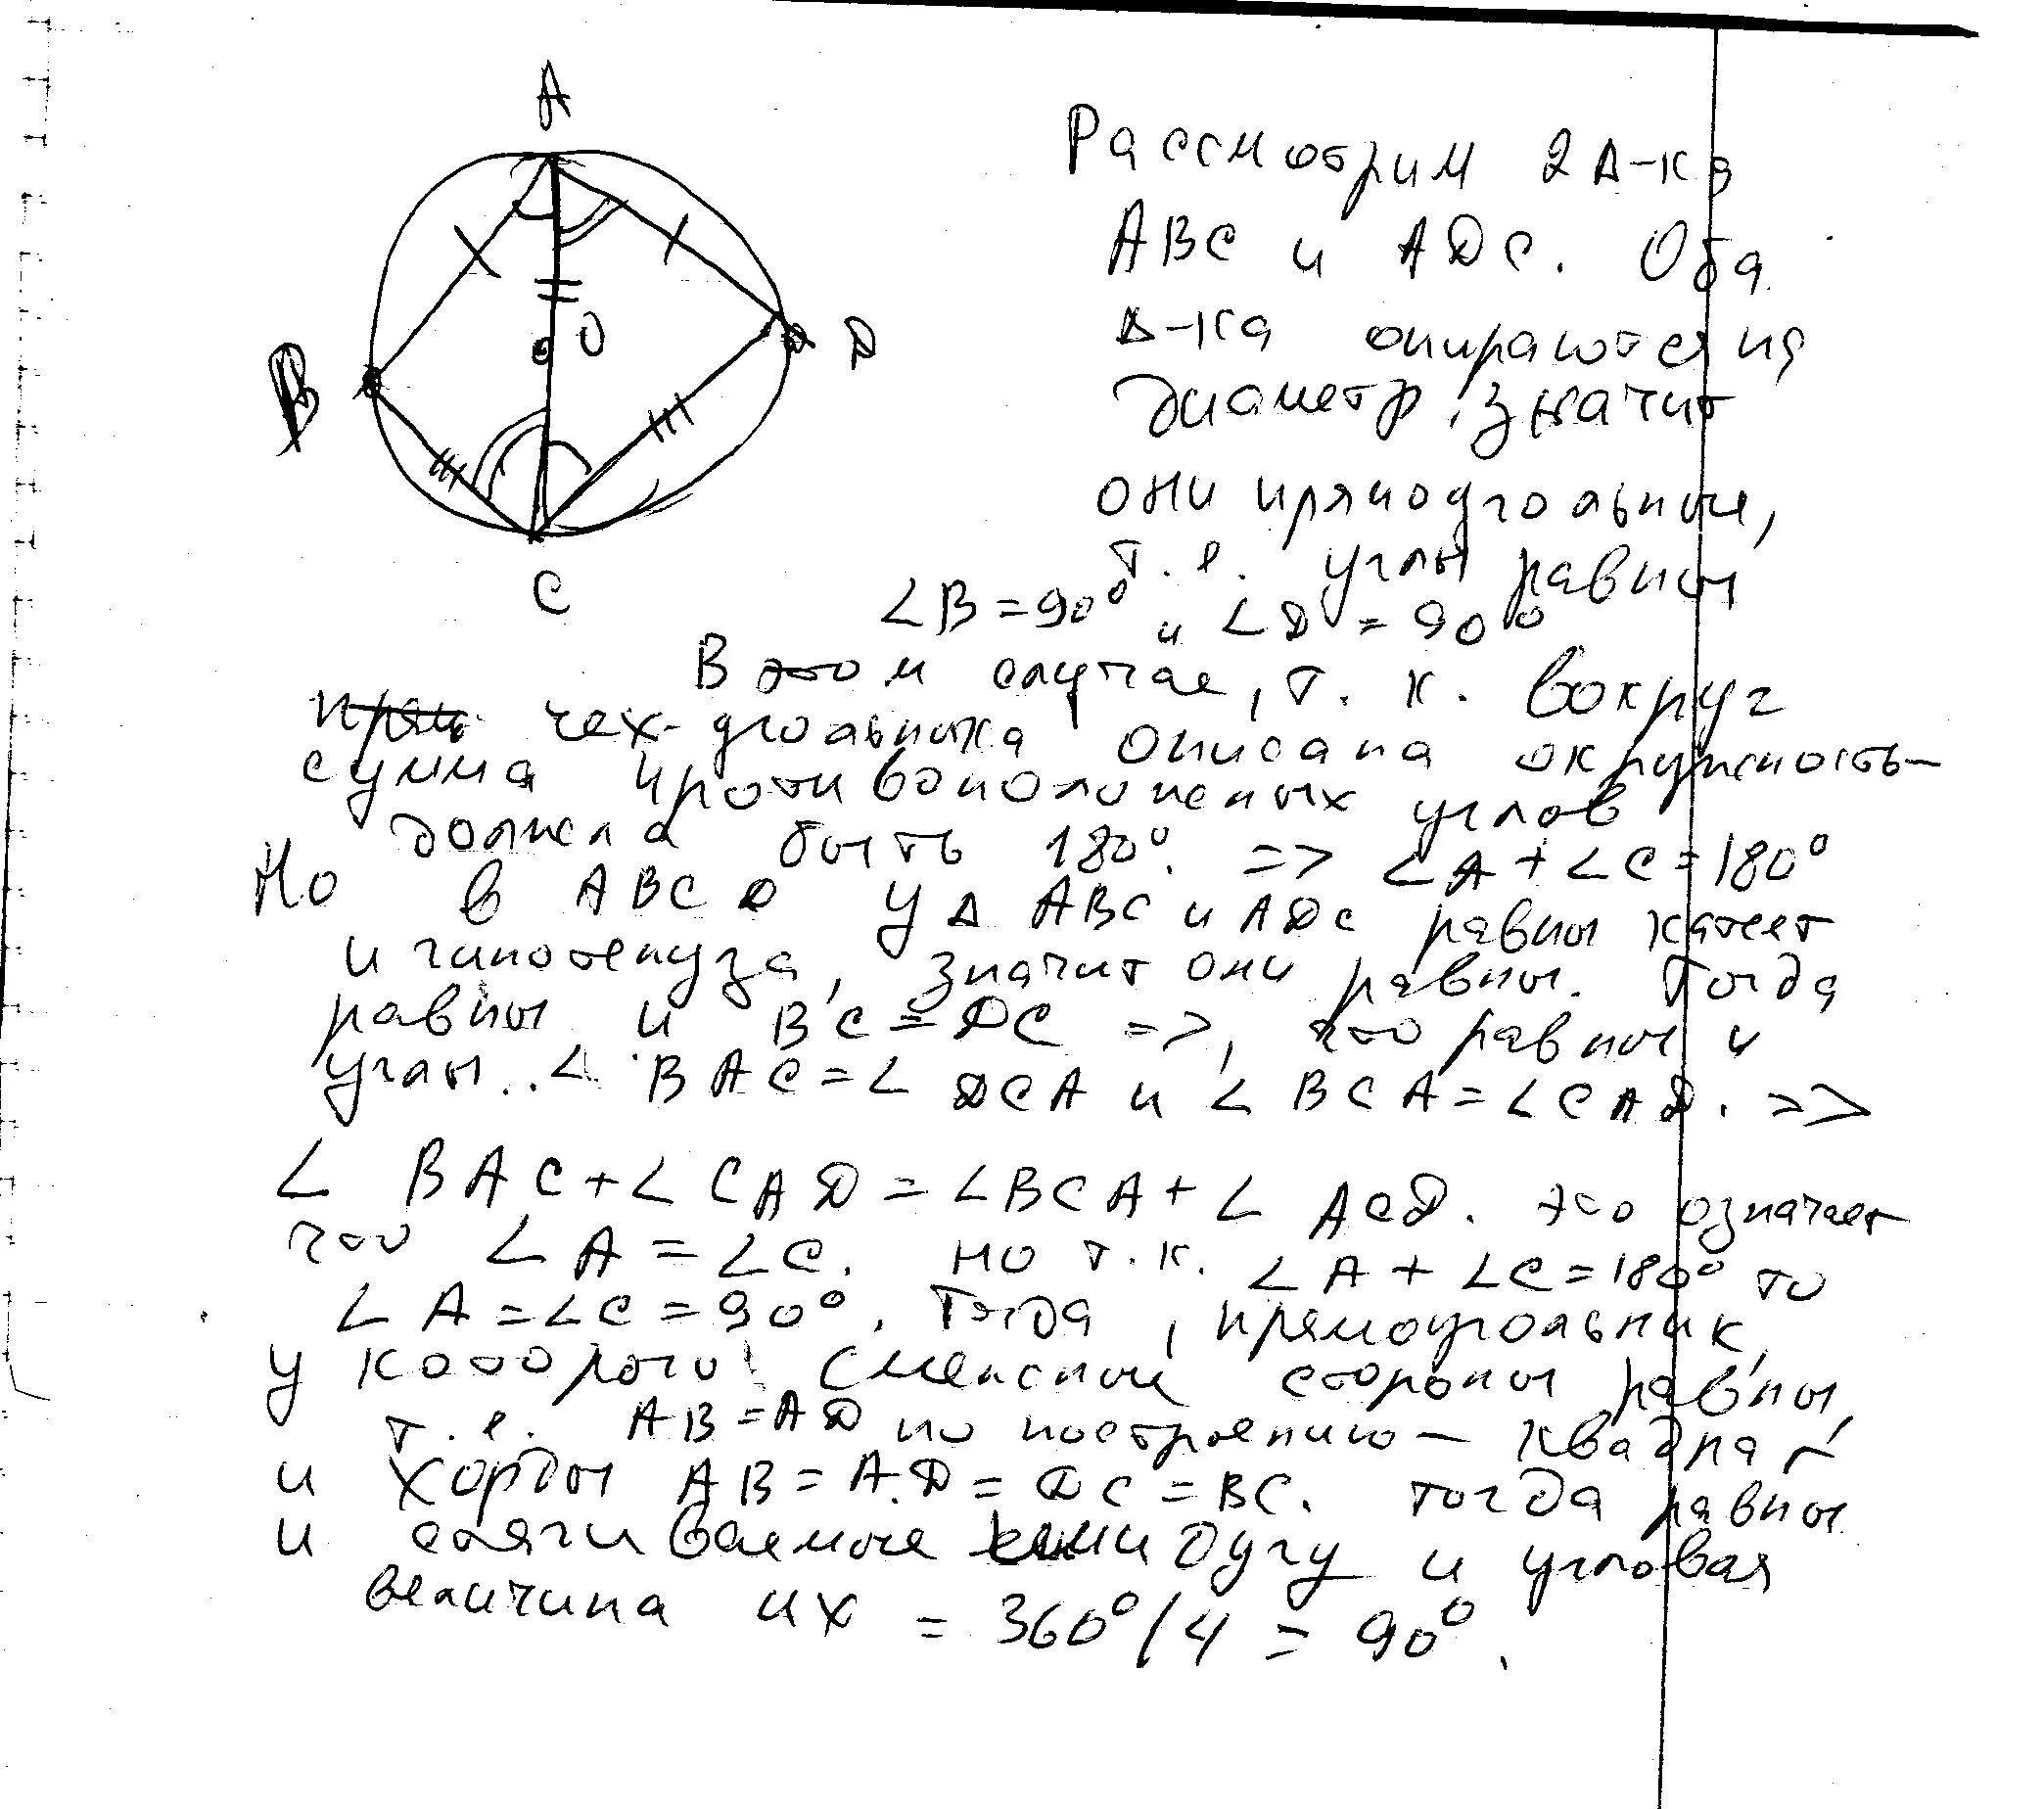 A
B
O
D
C
Рассмотрим 2 Δ-ка
ABC и ADC. Оба
Δ-ка опираются на
диаметр, значит
они прямоугольные,
т.е. углы равны
∠B = 90° и ∠D = 90°
В этом случае, т. к. вокруг
прям чех-угольника описана окружность-
сумма противоположных углов
должна быть 180°. => ∠A + ∠C = 180°
Но в ABCD у Δ ABC и ADC равны катет
и гипотенуза, значит они равны. Тогда
равны и BC = DC =>, что равны и
углы.. ∠ BAC = ∠ DCA и ∠ BCA = ∠CAD. =>
∠ BAC + ∠ CAD = ∠BCA + ∠ ACD. Это означает
что ∠A = ∠C. но т.к. ∠A + ∠C = 180° то
∠A = ∠C = 90°. Тогда, прямоугольник,
у которого смежные стороны равны,
т.е. AB = AD по построению - квадрат
и хорды AB = AD = DC = BC. Тогда равны
и стягиваемые ими дугу и угловая
величина их = 360°/4 = 90°.